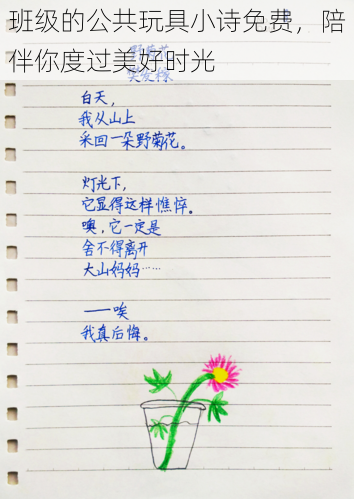 班级的公共玩具小诗免费，陪
伴你度过美好时光
野菊花
白天，
我从山上
采回一朵野菊花。
灯光下，
它显得这样憔悴。
噢，它一定是
舍不得离开
大山妈妈……
——唉
我真后悔。